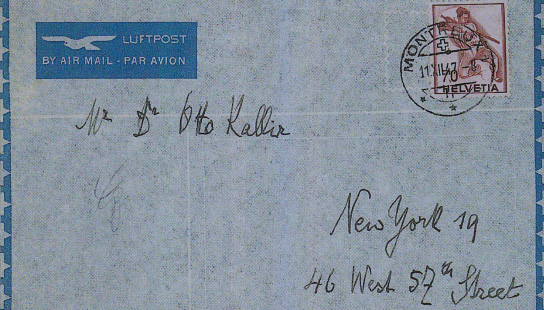 LUFTPOST
BY AIR MAIL - PAR AVION
MONTREUX
11.XII.47
70
HELVETIA
Mr Dr Otto Kallir
New York 19
46 West 57th Street